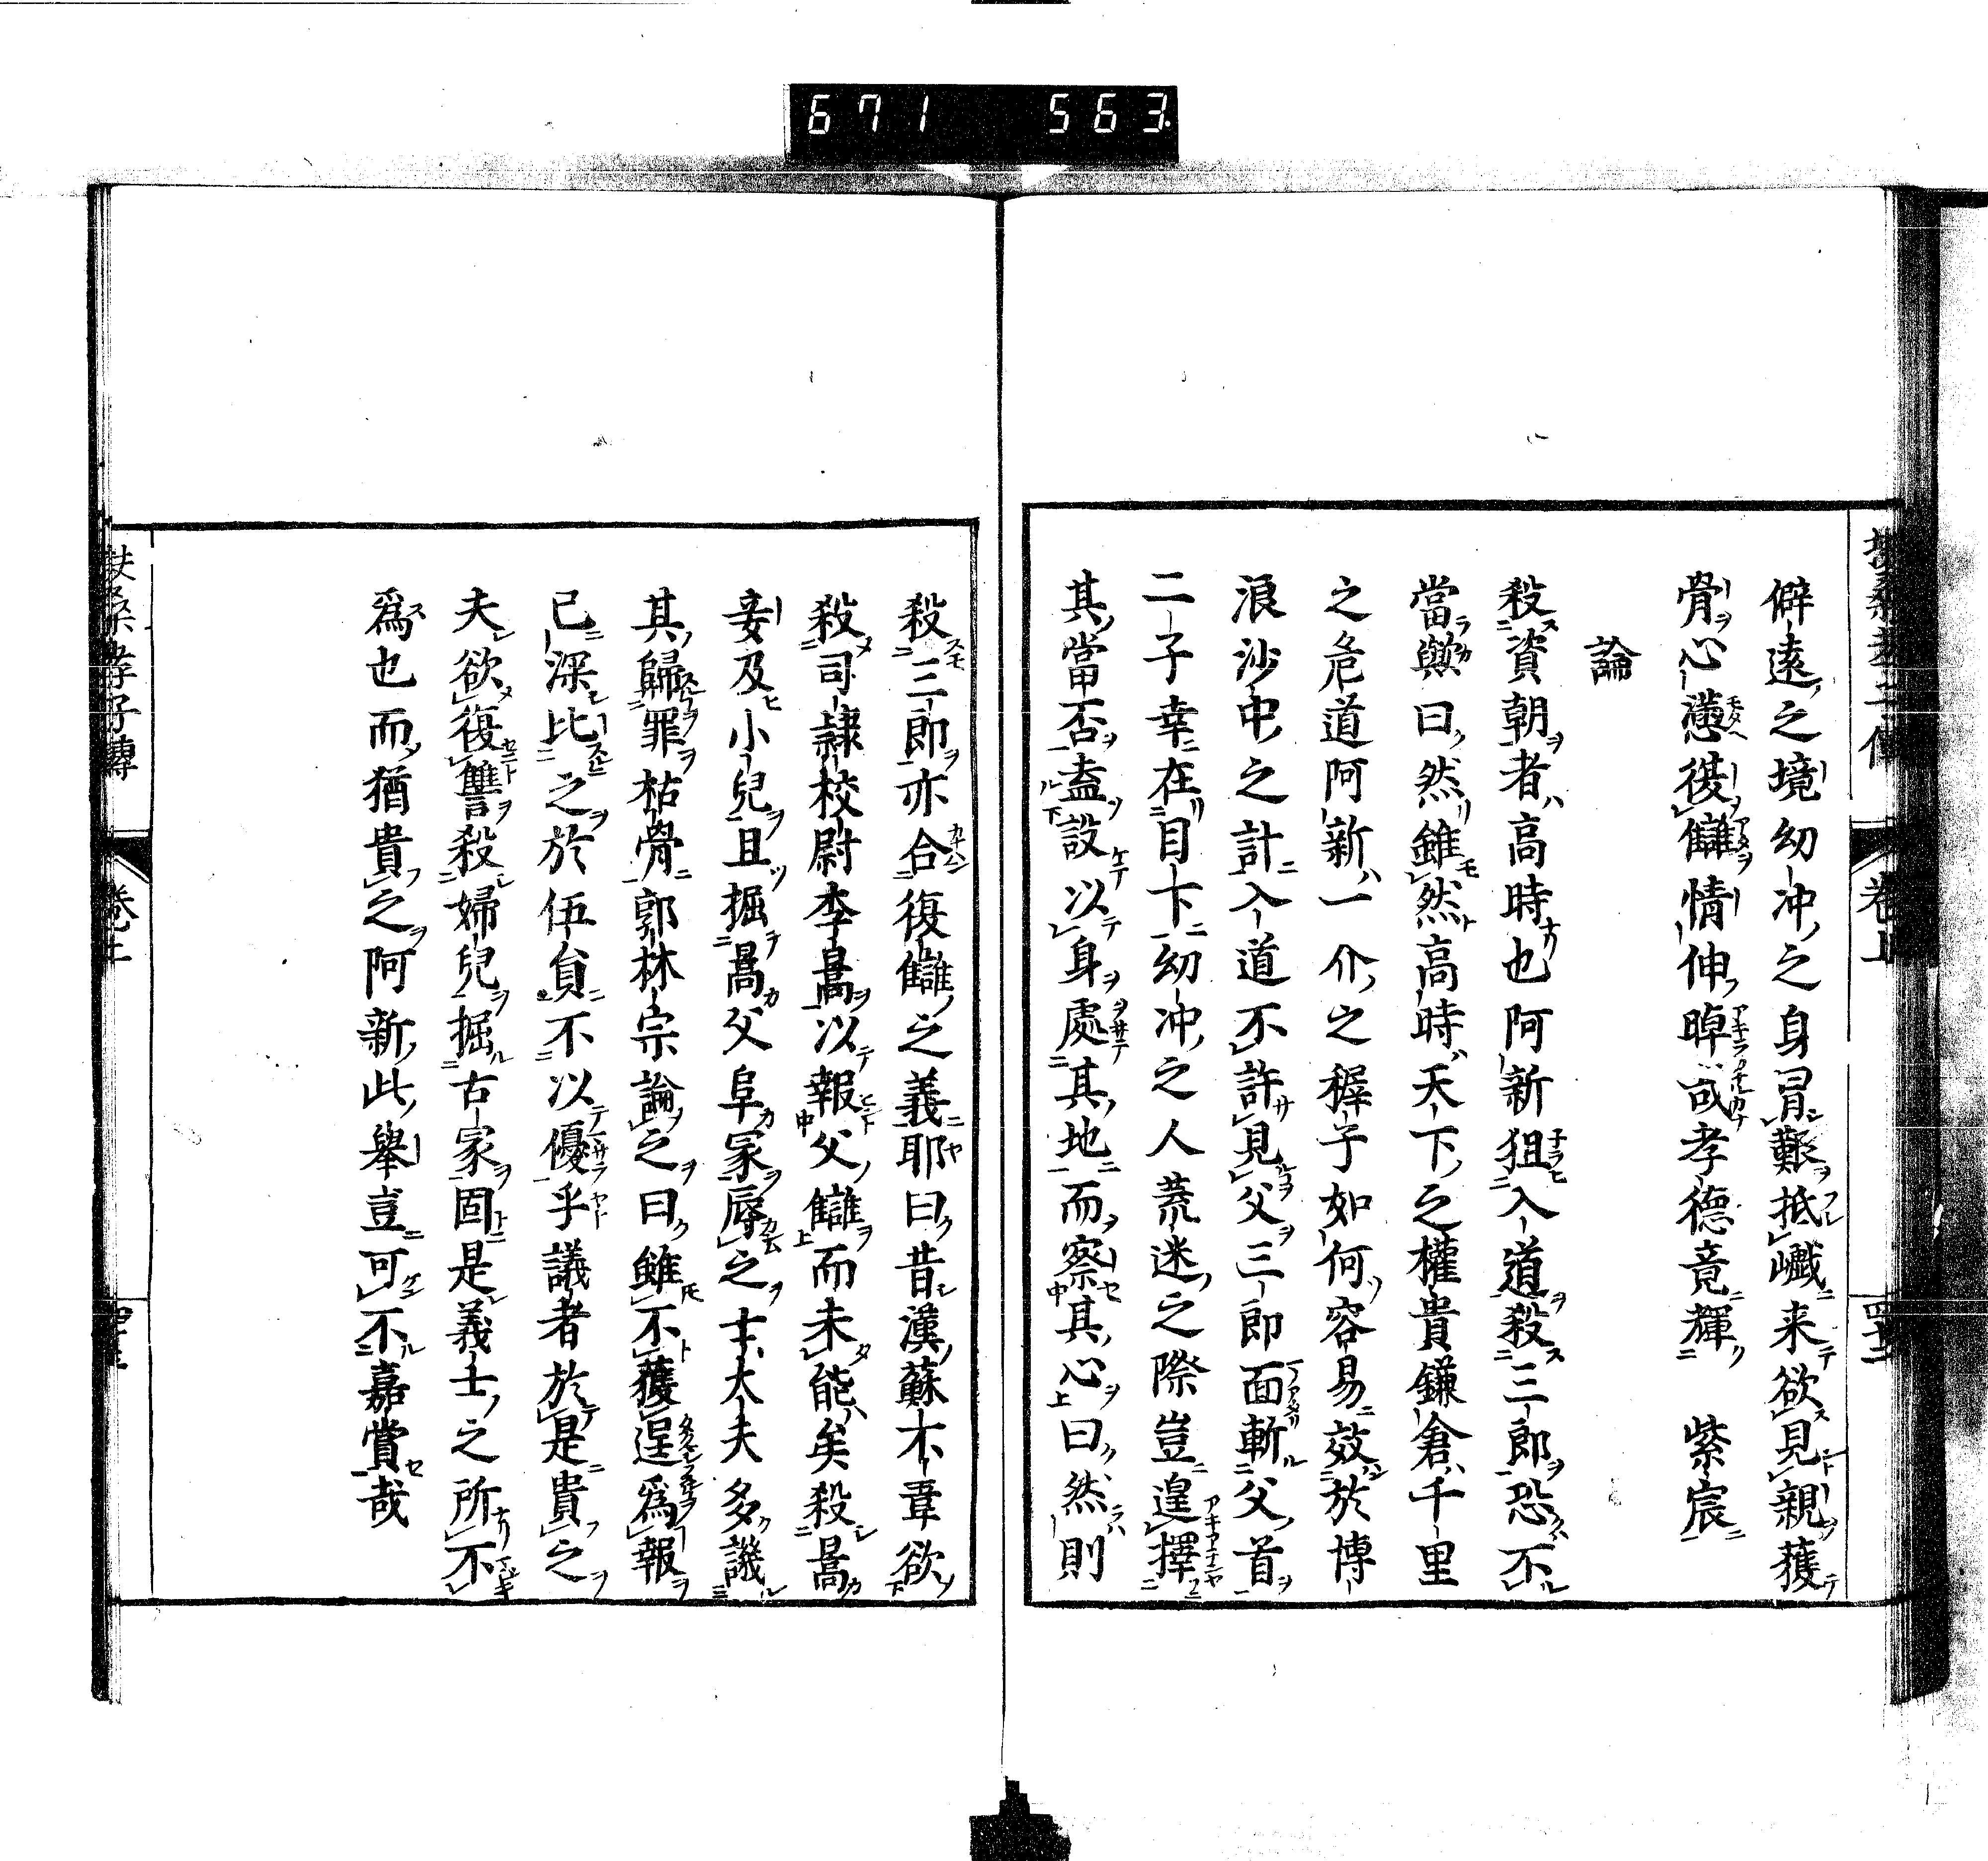 671 563
扶桑孝子傳 卷上
僻遠之境幼冲之身冒艱抵巇来欲見親獲
骨心懣復讎情伸晫哉孝德竟輝紫宸
論
殺資朝者高時也阿新狙入道殺三郎恐不
當與曰然雖然高時天下之權貴鎌倉千里
之危道阿新一介之穉子如何容易效於博
浪沙中之計入道不許見父三郎面斬父首
二子幸在目下幼冲之人荒迷之際豈遑擇
其當否盍設以身處其地而察其心曰然則
殺三郎亦合復讎之義耶曰昔漢蘇不韋欲
殺司隸校尉李暠以報父讎而未能矣殺暠
妾及小兒且掘暠父阜冢辱之士大夫多譏
其歸罪枯骨郭林宗論之曰雖不獲逞爲報
已深比之於伍員不以優乎議者於是貴之
夫欲復讐殺婦兒掘古冢固是義士之所不
爲也而猶貴之阿新此舉豈可不嘉賞哉
扶桑孝子傳 卷上